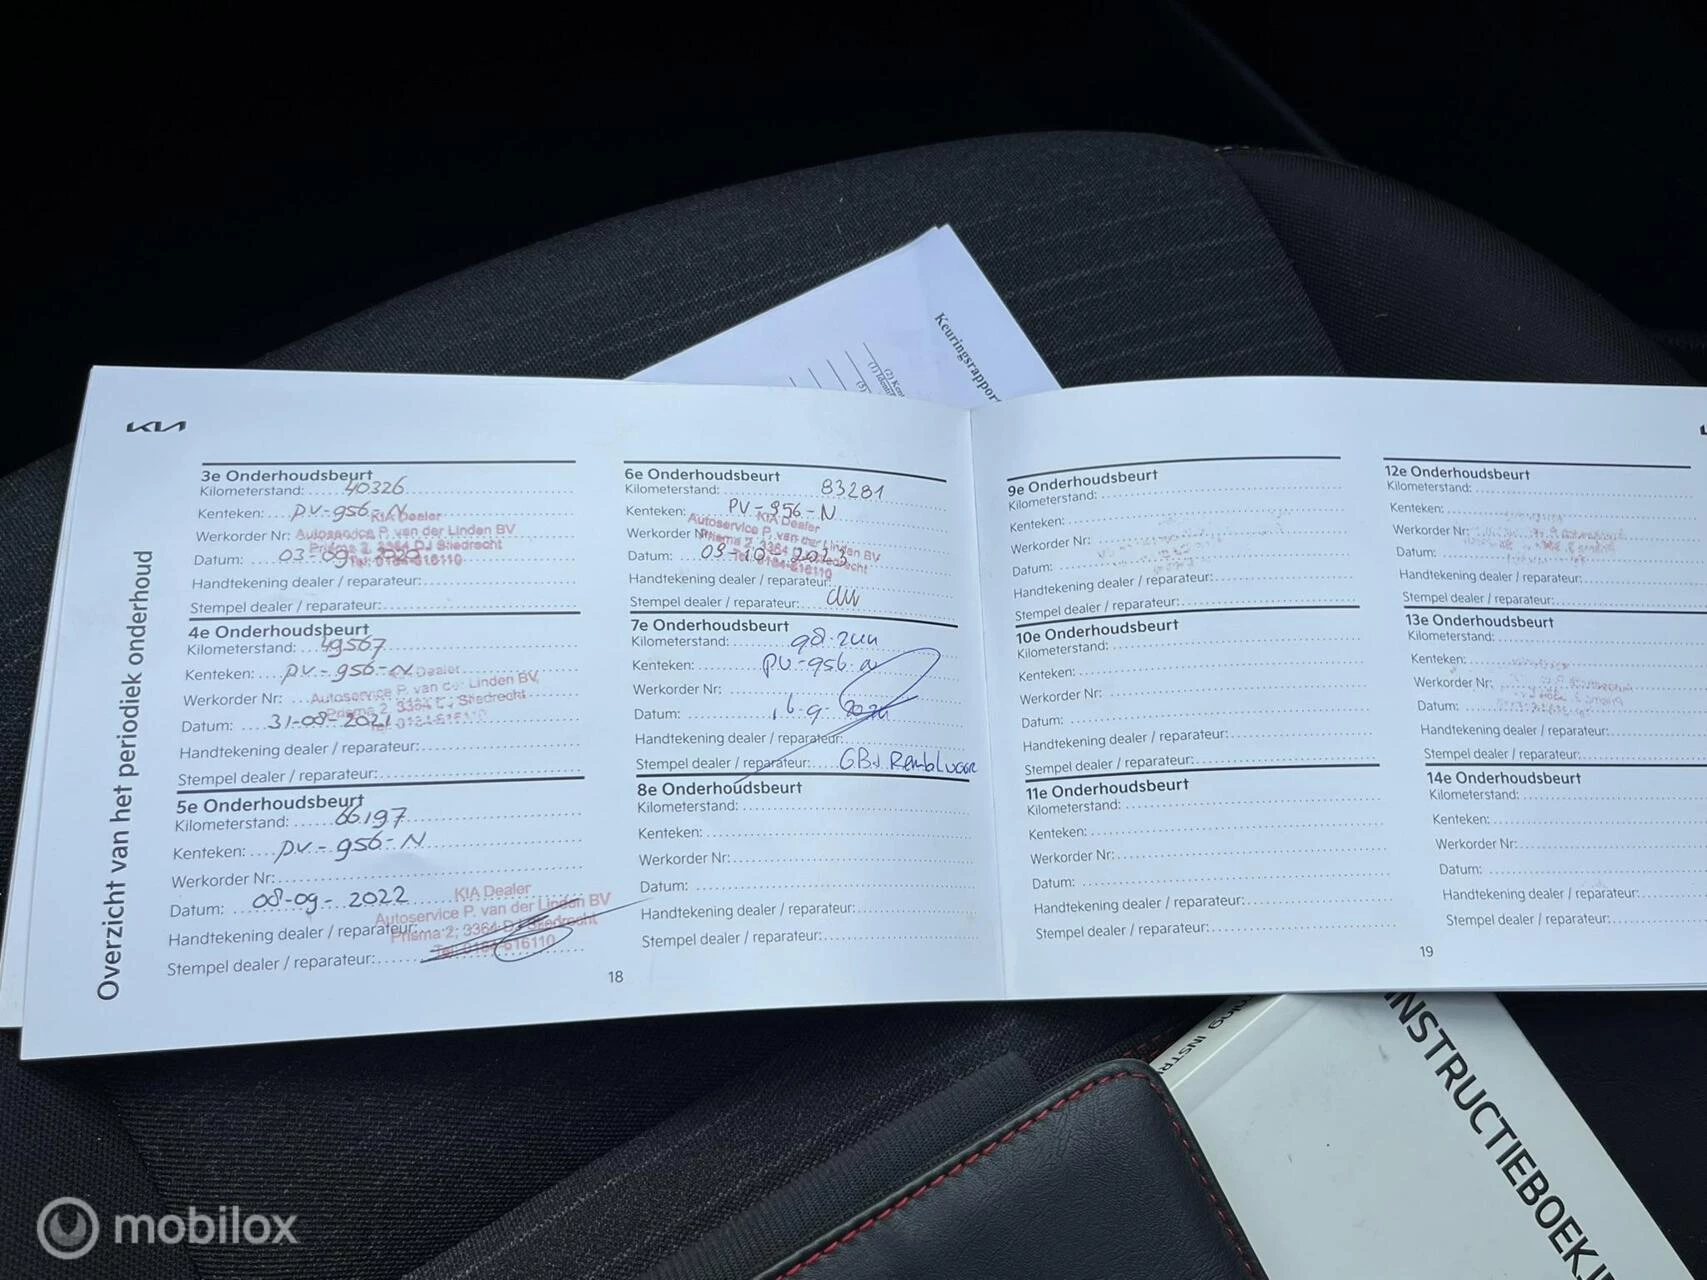 Keuringsrapport
KIA
Overzicht van het periodiek onderhoud
3e Onderhoudsbeurt
Kilometerstand: 40326
Kenteken: PV-956-N
KIA Dealer
Werkorder Nr:
Autoservice P. van der Linden BV
Prisma 2, 3364 DJ Sliedrecht
Datum: 03-09-2020
Tel. 0184-616110
Handtekening dealer / reparateur:
Stempel dealer / reparateur:
4e Onderhoudsbeurt
Kilometerstand: 49567
Kenteken: PV-956-N
Dealer
Werkorder Nr:
Autoservice P. van der Linden BV
Prisma 2, 3364 DJ Sliedrecht
Datum: 31-08-2021
Tel. 0184-616110
Handtekening dealer / reparateur:
Stempel dealer / reparateur:
5e Onderhoudsbeurt
Kilometerstand: 66.197
Kenteken: PV-956-N
Werkorder Nr:
Datum: 08-09-2022
KIA Dealer
Autoservice P. van der Linden BV
Handtekening dealer / reparateur:
Prisma 2, 3364 DJ Sliedrecht
Tel. 0184-616110
Stempel dealer / reparateur:
6e Onderhoudsbeurt
Kilometerstand: 83281
Kenteken: PV-956-N
KIA Dealer
Werkorder Nr:
Autoservice P. van der Linden BV
Prisma 2, 3364 DJ Sliedrecht
Datum: 09-10-2023
Tel. 0184-616110
Handtekening dealer / reparateur:
Stempel dealer / reparateur:
7e Onderhoudsbeurt
Kilometerstand:
Kenteken: PV-956-N
Werkorder Nr:
Datum:
Handtekening dealer / reparateur:
Stempel dealer / reparateur:
8e Onderhoudsbeurt
Kilometerstand:
Kenteken:
Werkorder Nr:
Datum:
Handtekening dealer / reparateur:
Stempel dealer / reparateur:
18
9e Onderhoudsbeurt
Kilometerstand:
Kenteken:
Werkorder Nr:
Datum:
Handtekening dealer / reparateur:
Stempel dealer / reparateur:
10e Onderhoudsbeurt
Kilometerstand:
Kenteken:
Werkorder Nr:
Datum:
Handtekening dealer / reparateur:
Stempel dealer / reparateur:
11e Onderhoudsbeurt
Kilometerstand:
Kenteken:
Werkorder Nr:
Datum:
Handtekening dealer / reparateur:
Stempel dealer / reparateur:
12e Onderhoudsbeurt
Kilometerstand:
Kenteken:
Werkorder Nr:
Datum:
Handtekening dealer / reparateur:
Stempel dealer / reparateur:
13e Onderhoudsbeurt
Kilometerstand:
Kenteken:
Werkorder Nr:
Datum:
Handtekening dealer / reparateur:
Stempel dealer / reparateur:
14e Onderhoudsbeurt
Kilometerstand:
Kenteken:
Werkorder Nr:
Datum:
Handtekening dealer / reparateur:
Stempel dealer / reparateur:
19
INSTRUCTIEBOEKJ
mobilox